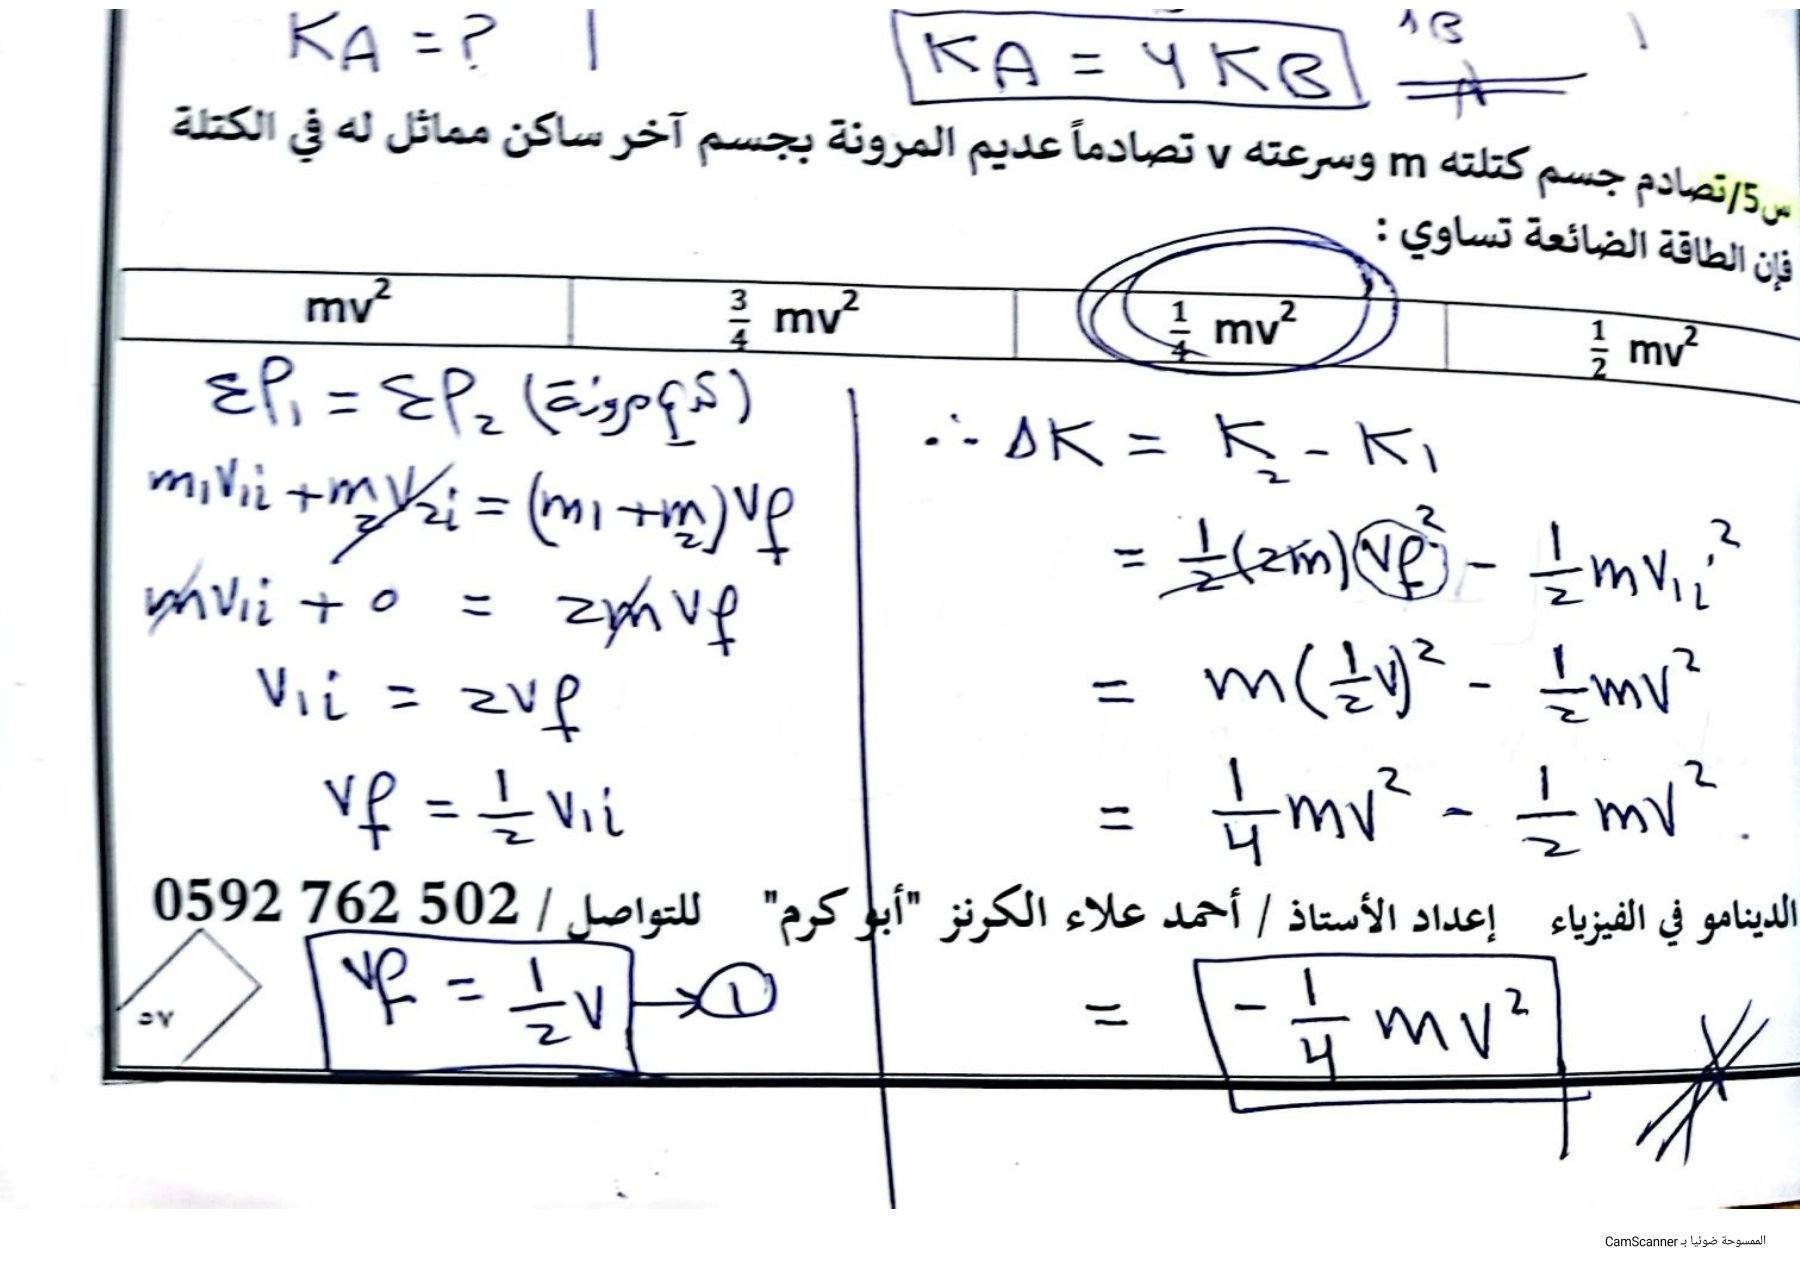 KA = ?
KA = 4 KB
س5/تصادم جسم كتلته m وسرعته v تصادماً عديم المرونة بجسم آخر ساكن مماثل له في الكتلة
فإن الطاقة الضائعة تساوي :
1/2 mv² 1/4 mv² 3/4 mv² mv²
ΣP₁ = ΣP₂ (عديم مرونة)
m₁v₁ᵢ + m₂v₂ᵢ = (m₁ + m₂)vf
mv₁ᵢ + 0 = 2mvf
v₁ᵢ = 2vf
vf = 1/2 v₁ᵢ
vf = 1/2 v → ①
∴ ΔK = K₂ - K₁
= 1/2 (2m)(vf)² - 1/2 mv₁ᵢ²
= m(1/2 v)² - 1/2 mv²
= 1/4 mv² - 1/2 mv²
= - 1/4 mv²
الدينامو في الفيزياء إعداد الأستاذ / أحمد علاء الكرنز "أبو كرم" للتواصل / 0592 762 502
٥٧
الممسوحة ضوئيا بـ CamScanner